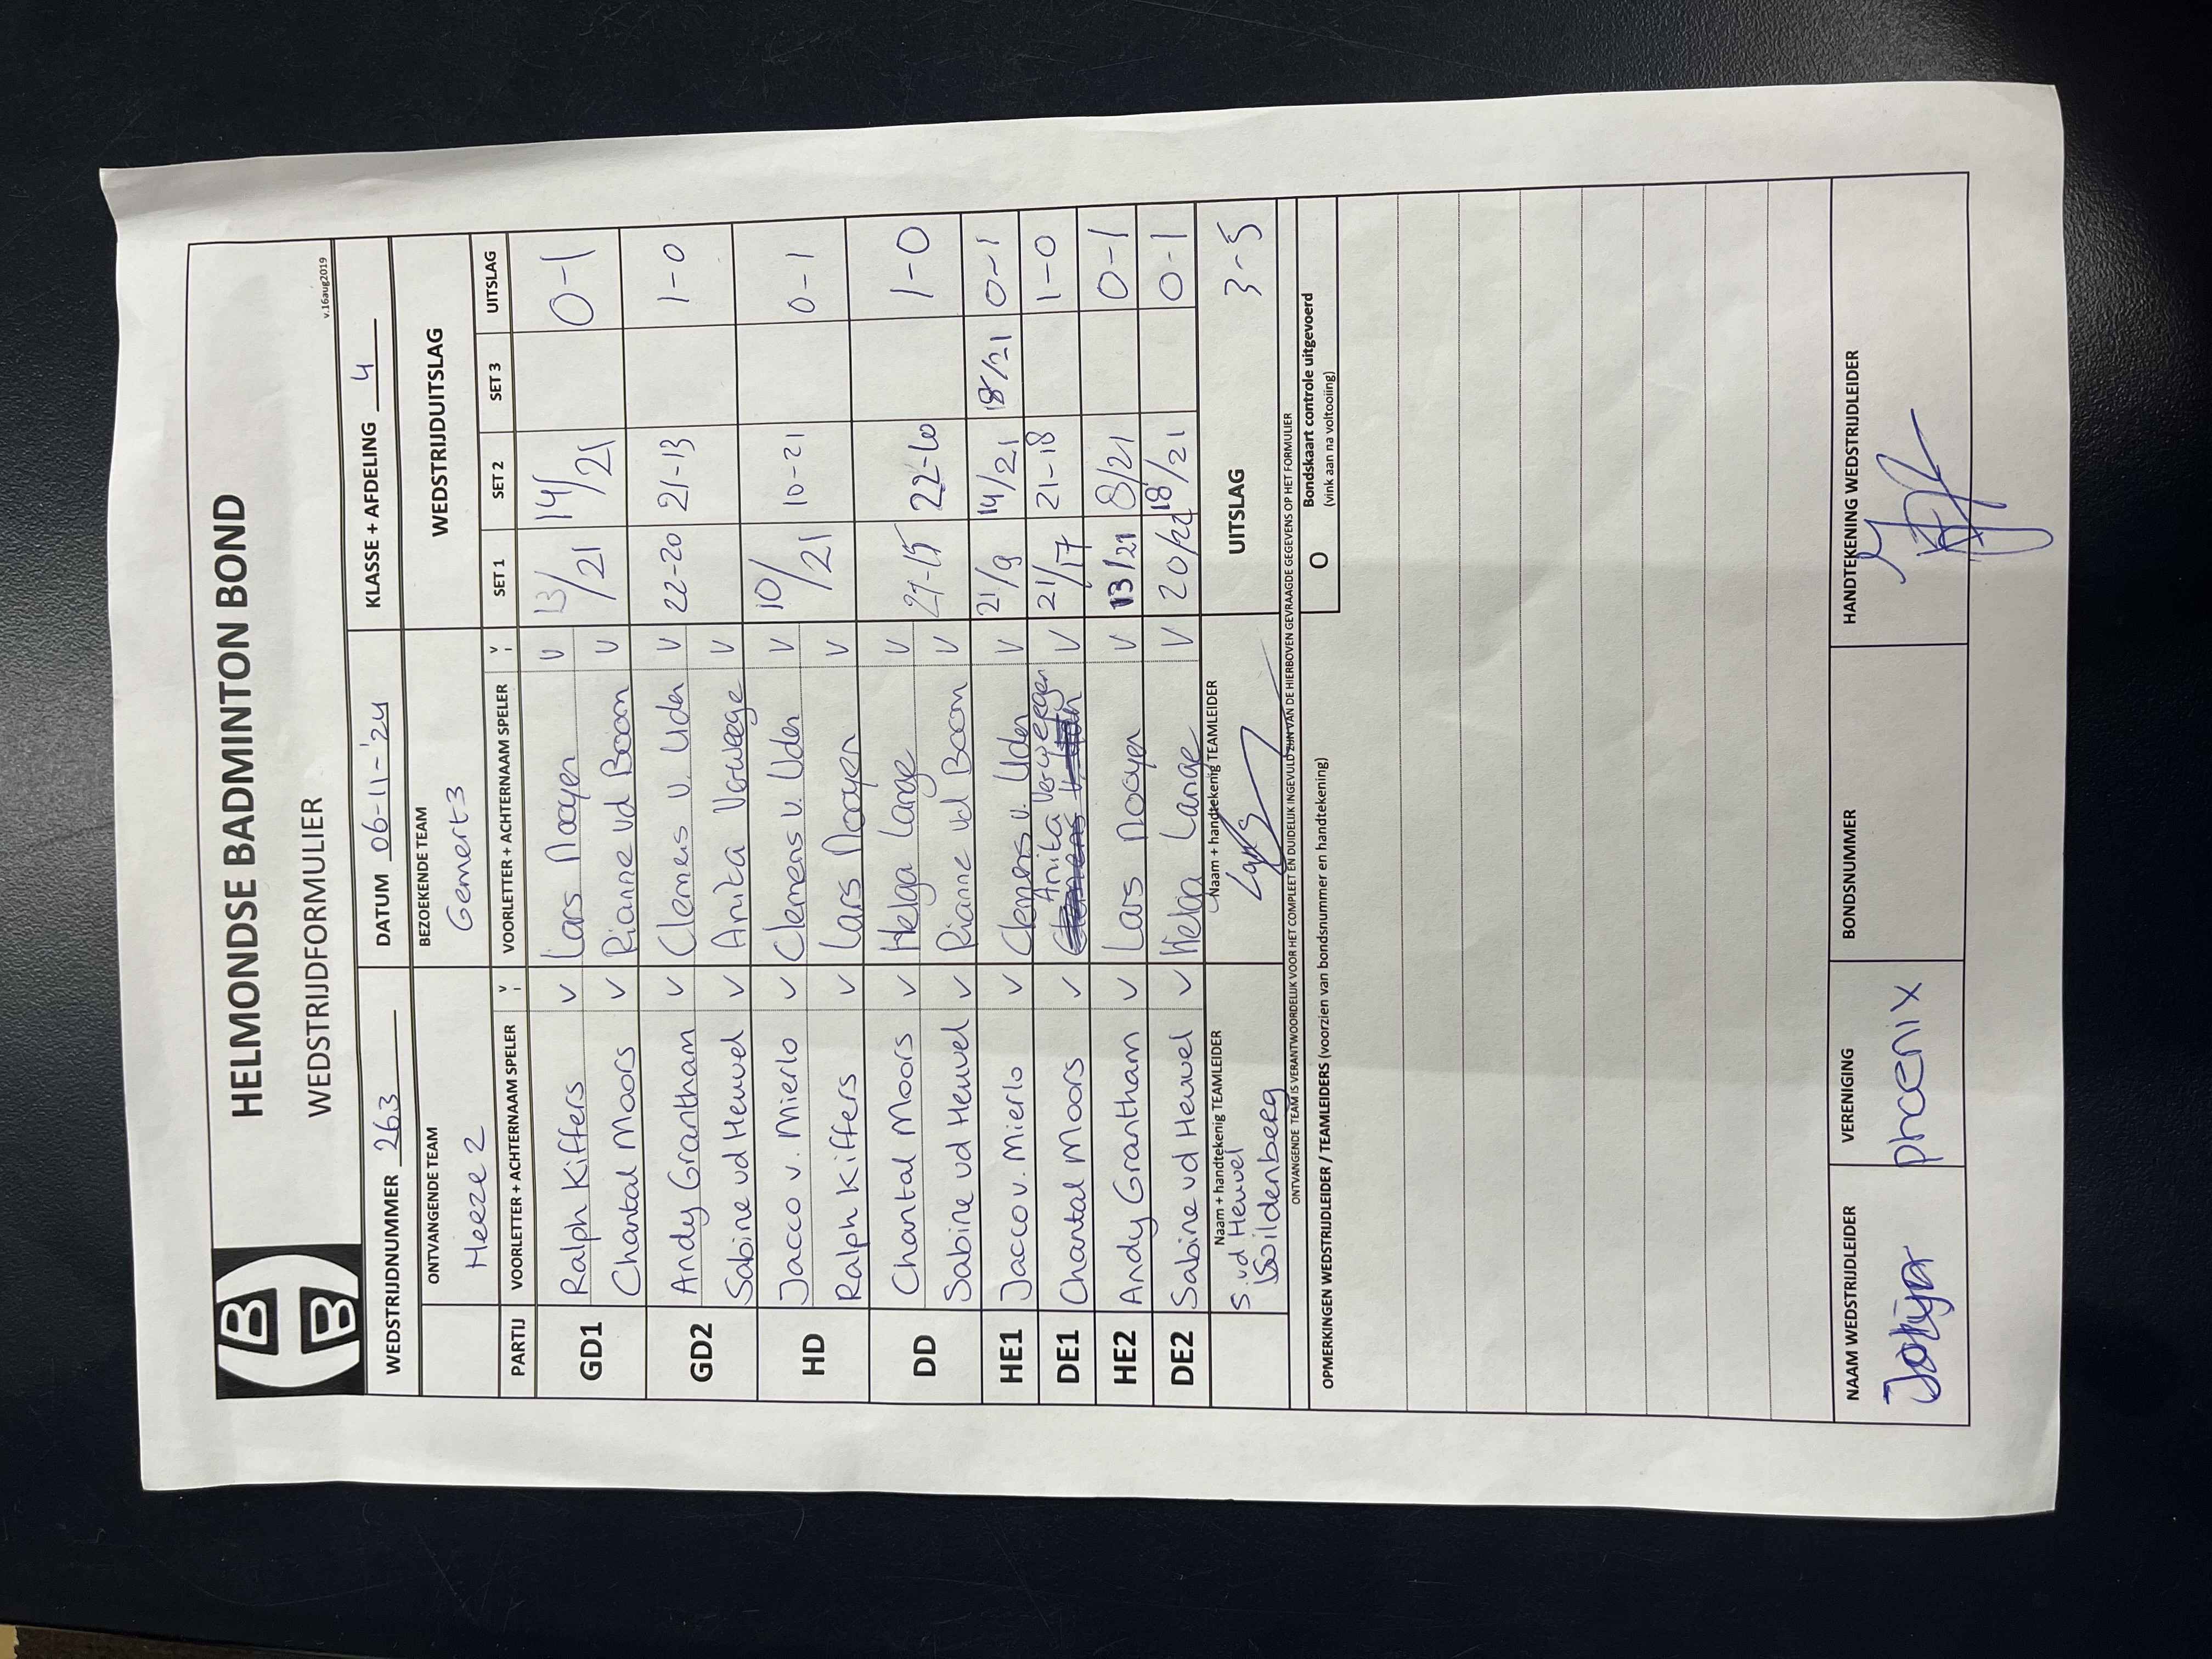 HELMONDSE BADMINTON BOND
WEDSTRIJDFORMULIER
v.16aug2019
WEDSTRIJDNUMMER 263 DATUM 06-11-'24 KLASSE + AFDELING 4
ONTVANGENDE TEAM BEZOEKENDE TEAM WEDSTRIJDUITSLAG
Heeze 2 Gemert 3
PARTIJ VOORLETTER + ACHTERNAAM SPELER V VOORLETTER + ACHTERNAAM SPELER V SET 1 SET 2 SET 3 UITSLAG
GD1 Ralph Kiffers V Lars Nooyen V 13/21 14/21 0-1
Chantal Moors V Rianne vd Boom V
GD2 Andy Grantham V Clemens v. Uden V 22-20 21-13 1-0
Sabine vd Heuvel V Anita Verweege V
HD Jacco v. Mierlo V Clemens v. Uden V 10/21 10-21 0-1
Ralph Kiffers V Lars Nooyen V
DD Chantal Moors V Helga Lange V 21-15 22-20 1-0
Sabine vd Heuvel V Rianne vd Boom V
HE1 Jacco v. Mierlo V Clemens v. Uden V 21/9 14/21 18/21 0-1
DE1 Chantal Moors V Anita Verweegen V 21/17 21-18 1-0
HE2 Andy Grantham V Lars Nooyen V 13/21 8/21 0-1
DE2 Sabine vd Heuvel V Helga Lange V 20/22 18/21 0-1
Naam + handtekenig TEAMLEIDER Naam + handtekenig TEAMLEIDER UITSLAG 3-5
S. vd Heuvel
Wildenberg
ONTVANGENDE TEAM IS VERANTWOORDELIJK VOOR HET COMPLEET EN DUIDELIJK INGEVULD ZIJN VAN DE HIERBOVEN GEVRAAGDE GEGEVENS OP HET FORMULIER
OPMERKINGEN WEDSTRIJDLEIDER / TEAMLEIDERS (voorzien van bondsnummer en handtekening)
O Bondskaart controle uitgevoerd
(vink aan na voltooiing)
NAAM WEDSTRIJDLEIDER VERENIGING BONDSNUMMER HANDTEKENING WEDSTRIJDLEIDER
phoenix